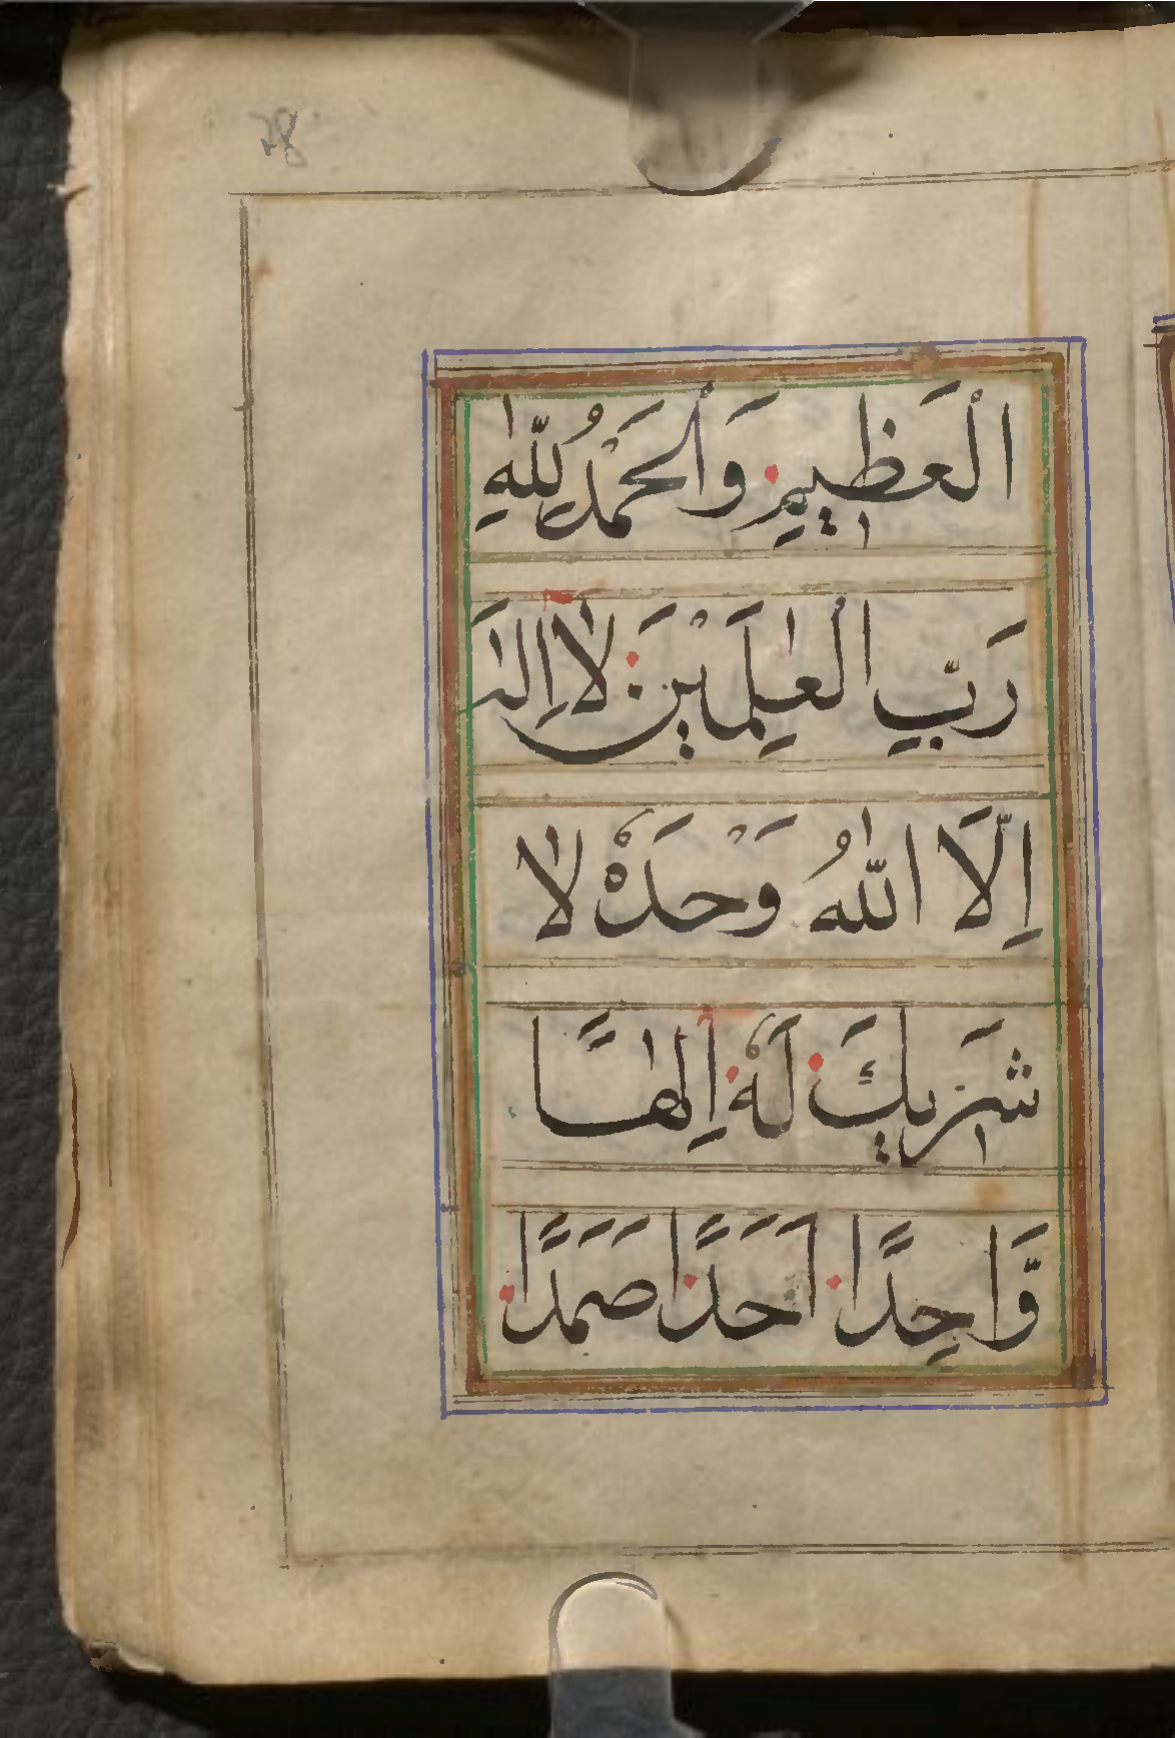 28
الْعَظِيمِ وَالْحَمْدُ لِلّٰهِ
رَبِّ الْعٰلَمِيْنَ لَا اِلٰهَ
اِلَّا اللّٰهُ وَحْدَهٗ لَا
شَرِيكَ لَهٗ اِلٰهًا
وَّاحِدًا اَحَدًا صَمَدًا